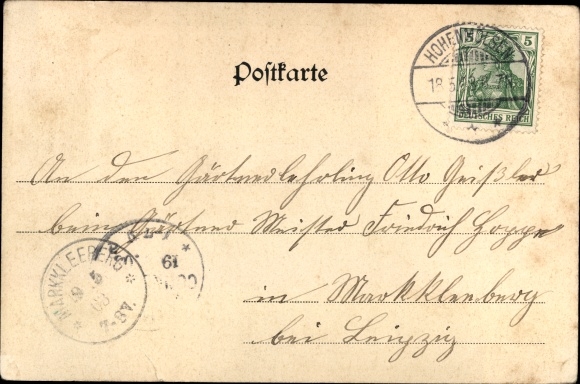 Postkarte
HOHENMÖLSEN
18 5
5 5
DEUTSCHES REICH
An den Gärtnerlehrling Otto Geißler
beim Gärtner Meister Friedrich Hoppe
in Markkleeberg
bei Leipzig
MARKKLEEBERG
7-8V.